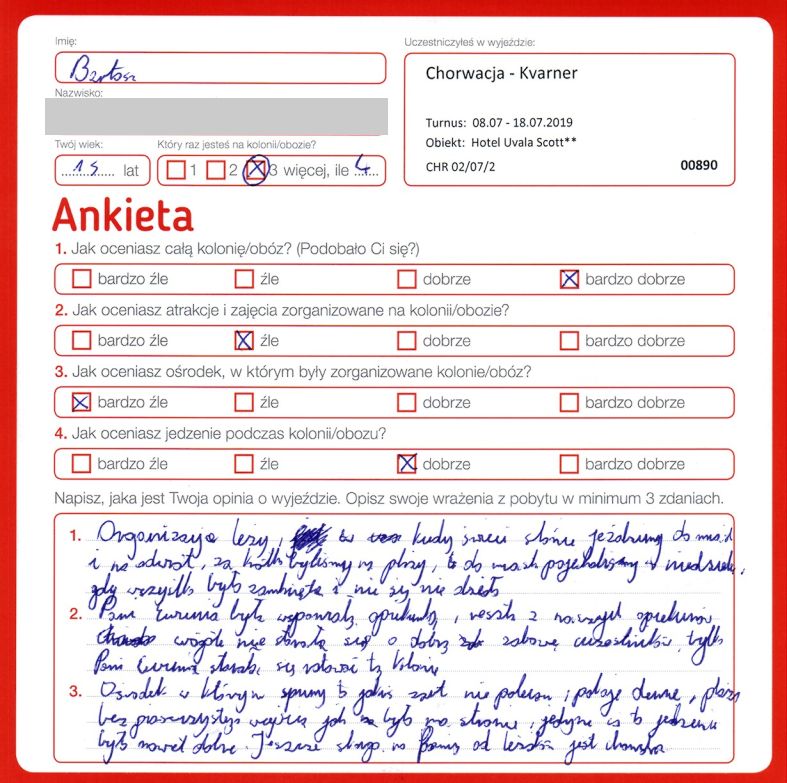 Imię:
Uczestniczyłeś w wyjeździe:
Bartosz
Chorwacja - Kvarner
Nazwisko:
Turnus: 08.07 - 18.07.2019
Obiekt: Hotel Uvala Scott**
CHR 02/07/2 00890
Twój wiek:
Który raz jesteś na kolonii/obozie?
15 lat
1 2 3 więcej, ile 4
Ankieta
1. Jak oceniasz całą kolonię/obóz? (Podobało Ci się?)
bardzo źle źle dobrze bardzo dobrze
2. Jak oceniasz atrakcje i zajęcia zorganizowane na kolonii/obozie?
bardzo źle źle dobrze bardzo dobrze
3. Jak oceniasz ośrodek, w którym były zorganizowane kolonie/obóz?
bardzo źle źle dobrze bardzo dobrze
4. Jak oceniasz jedzenie podczas kolonii/obozu?
bardzo źle źle dobrze bardzo dobrze
Napisz, jaka jest Twoja opinia o wyjeździe. Opisz swoje wrażenia z pobytu w minimum 3 zdaniach.
1. Organizacja leży, kiedy świeci słońce jeździmy do miast
i na odwrót, za krótko byliśmy na plaży, do miast pojechaliśmy w niedzielę,
gdy wszystko było zamknięte i nic się nie działo
2. Pani była wspaniałą opiekunką, reszta z naszych opiekunów
wogóle nie starała się o dobrą zabawę uczestników, tylko
Pani starała się ratować tą kolonię
3. Ośrodek w którym to jakiś żart nie polecam, pokoje denne, plaża
bez wejścia jak było na stronie, jedyne co to jedzenie
było nawet dobre. Jeszcze na od jest